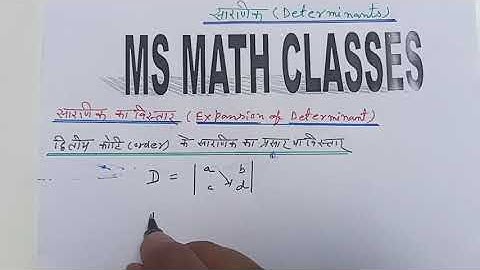 सारणिक (Determinants)
MS MATH CLASSES
सारणिक का विस्तार (Expansion of Determinant)
द्वितीय कोटि (order) के सारणिक का प्रसार या विस्तार
D = | a b |
| c d |